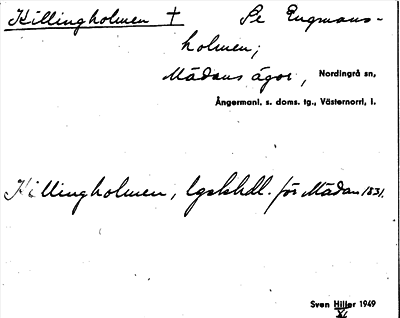 Killingholmen † Se Engmans-
holmen;
Mädans ägor, Nordingrå sn,
Ångermanl. s. doms. tg., Västernorrl. l.
Killingholmen, lgskhdl. för Mädan 1831.
Sven Hiller 1949
XI